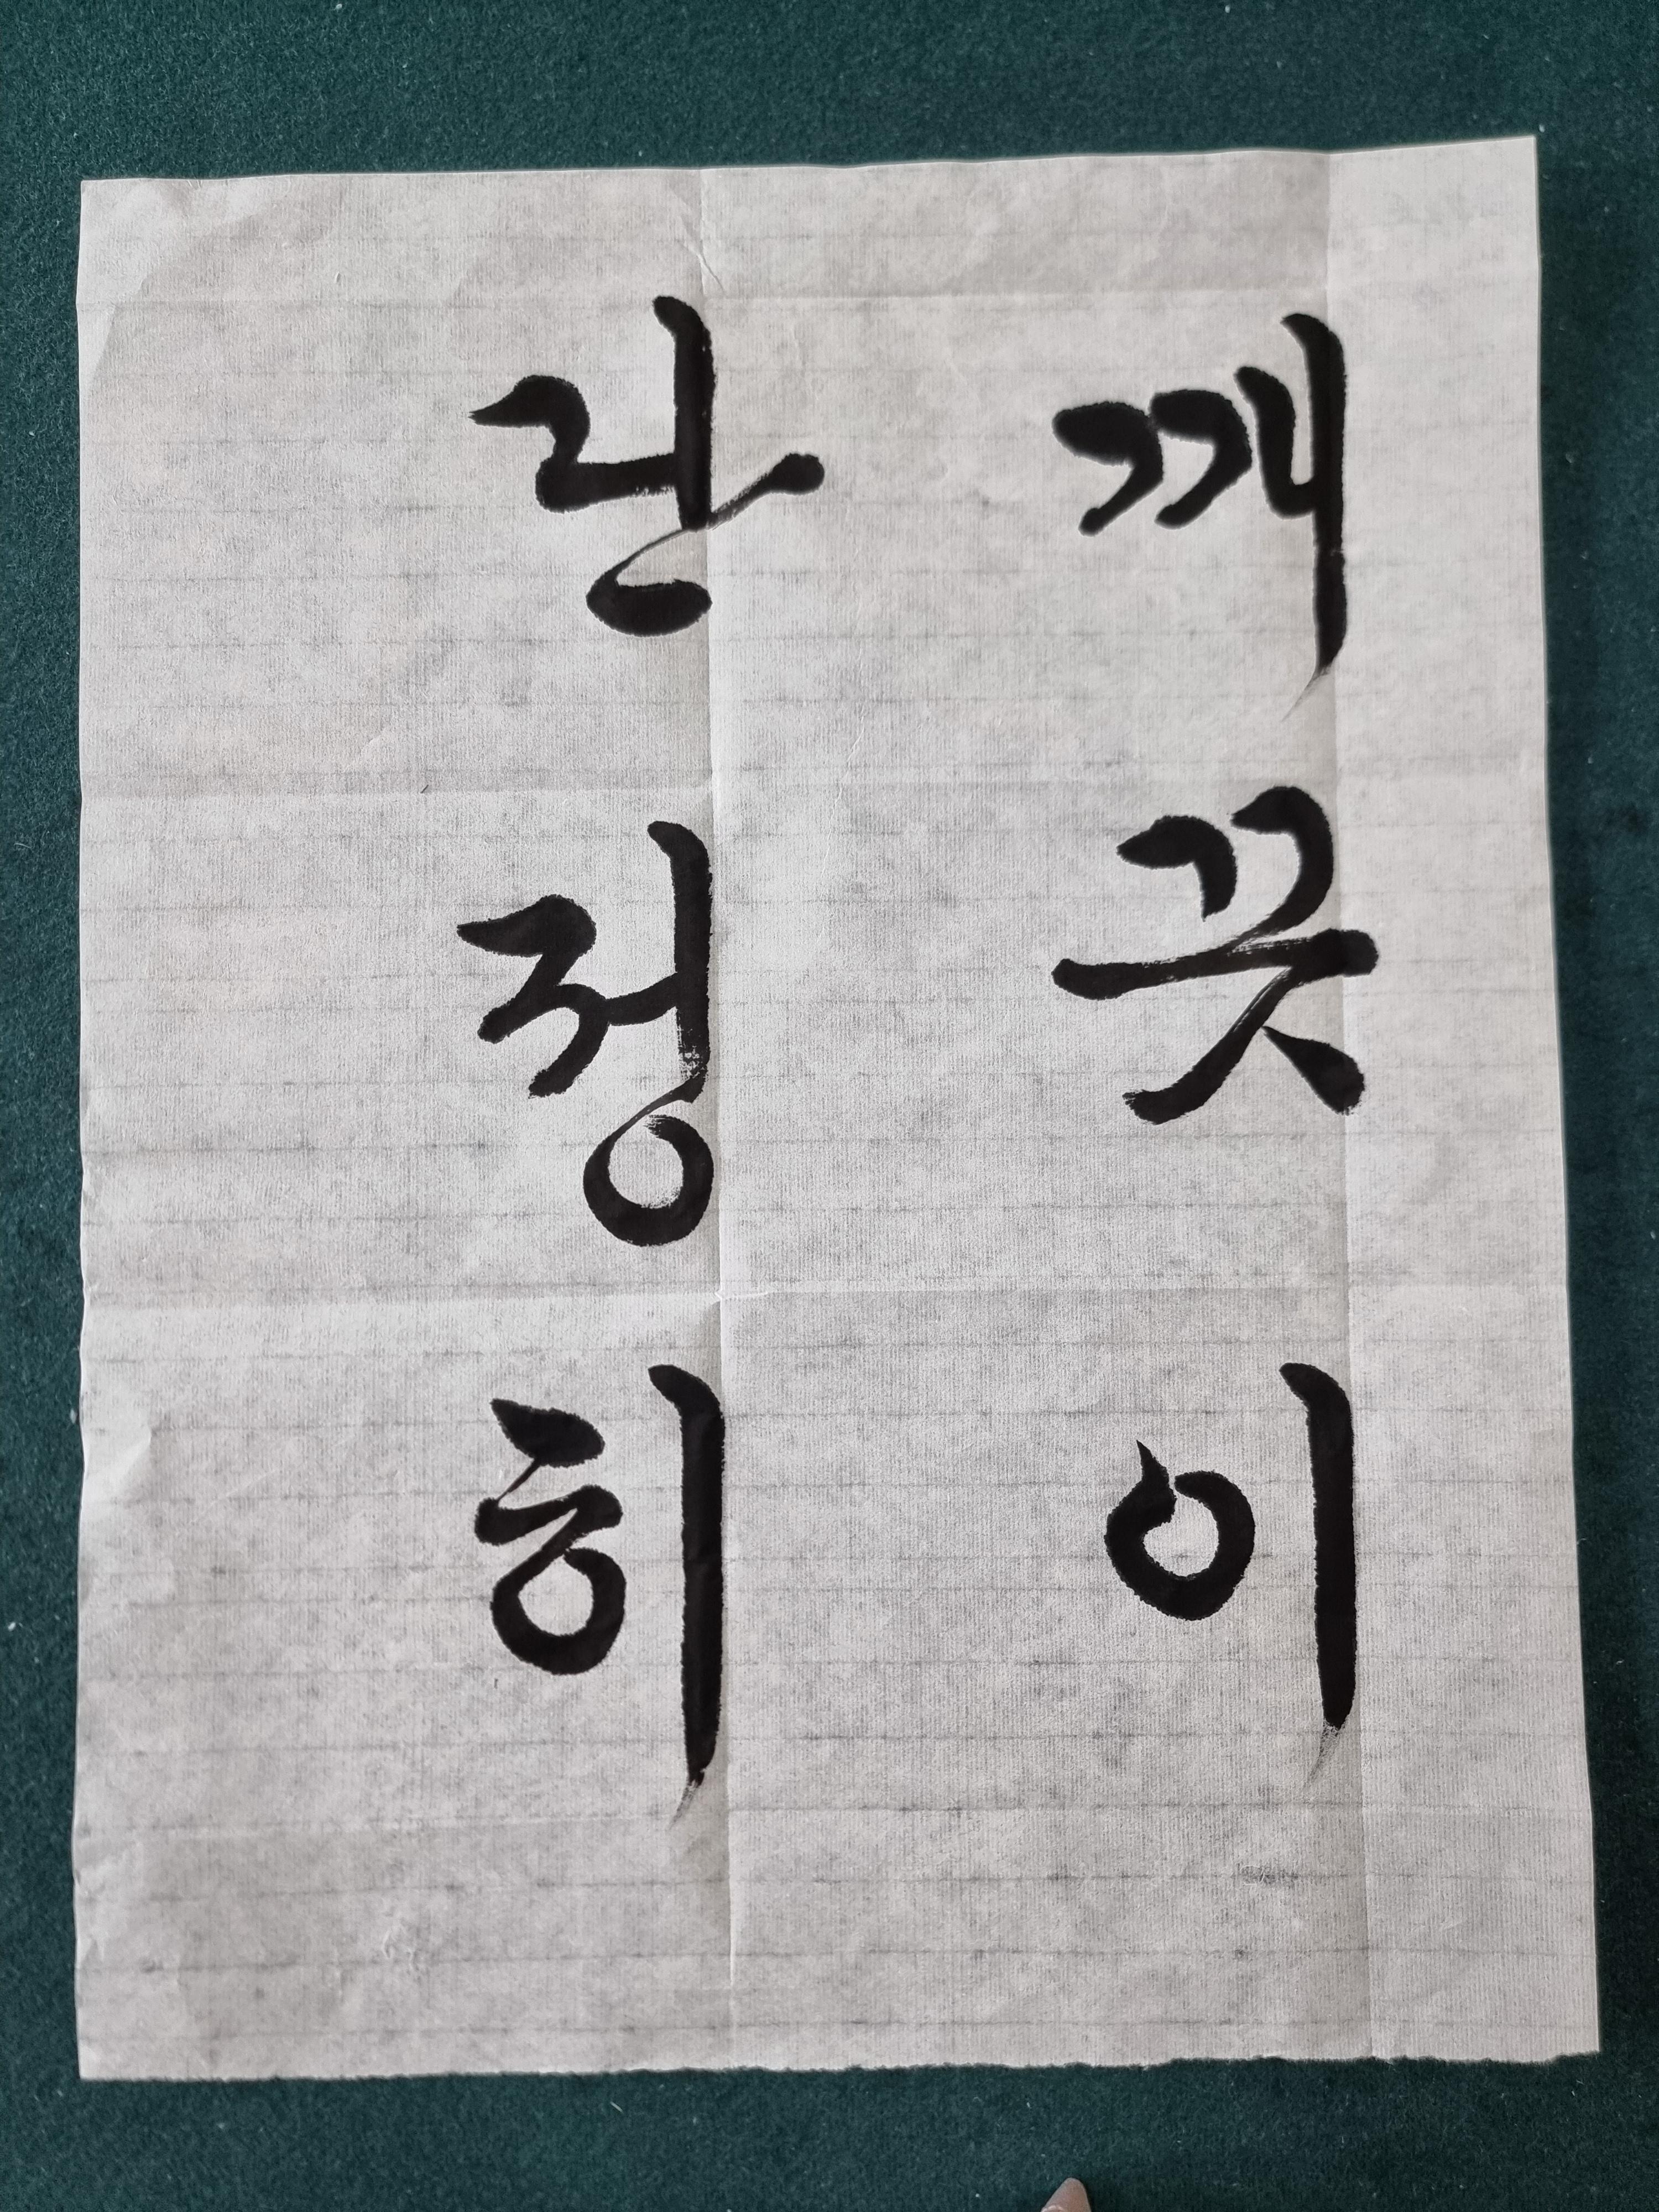 깨끗이
단정히